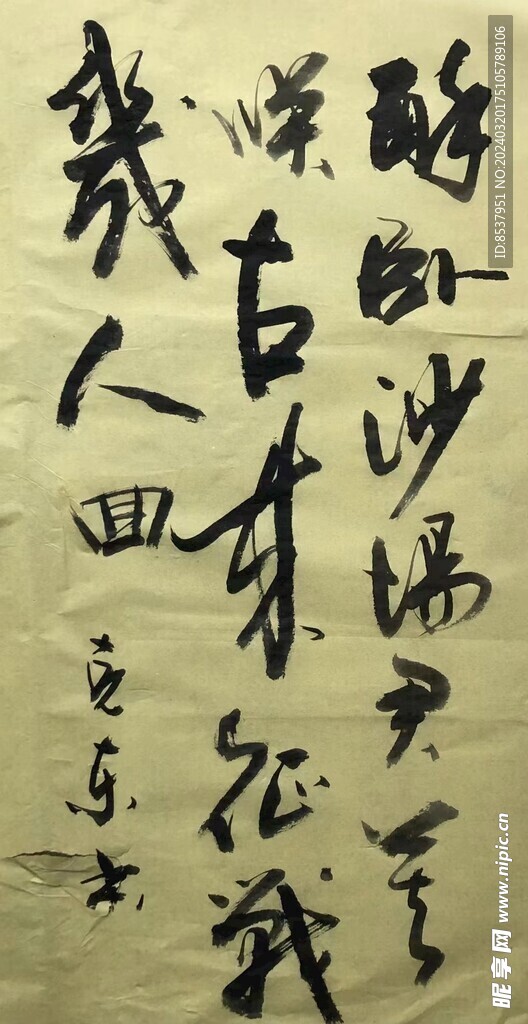 醉卧沙场君莫
笑古来征战
几人回
克东书
ID:8537951 NO:20240320175105789106
昵享网 www.nipic.cn